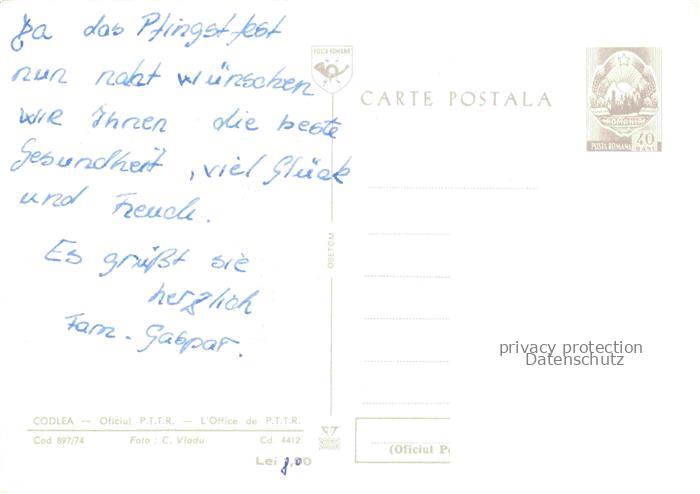 Da das Pfingstfest
nun naht wünschen
wir Ihnen die beste
Gesundheit, viel Glück
und Freude.
Es grüßt sie
herzlich
Fam. Gaspar.
POSTA ROMANA
CARTE POSTALA
ROMANIA
POSTA ROMANA 40 BANI
OBETCM
privacy protection
Datenschutz
CODLEA — Oficiul P.T.T.R. — L'Office de P.T.T.R.
Cod 897/74 Foto : C. Vladu Cd. 4412
Lei
(Oficiul P